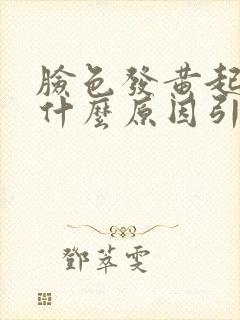 臉色發黃起
什麼原因引
鄧萃雯